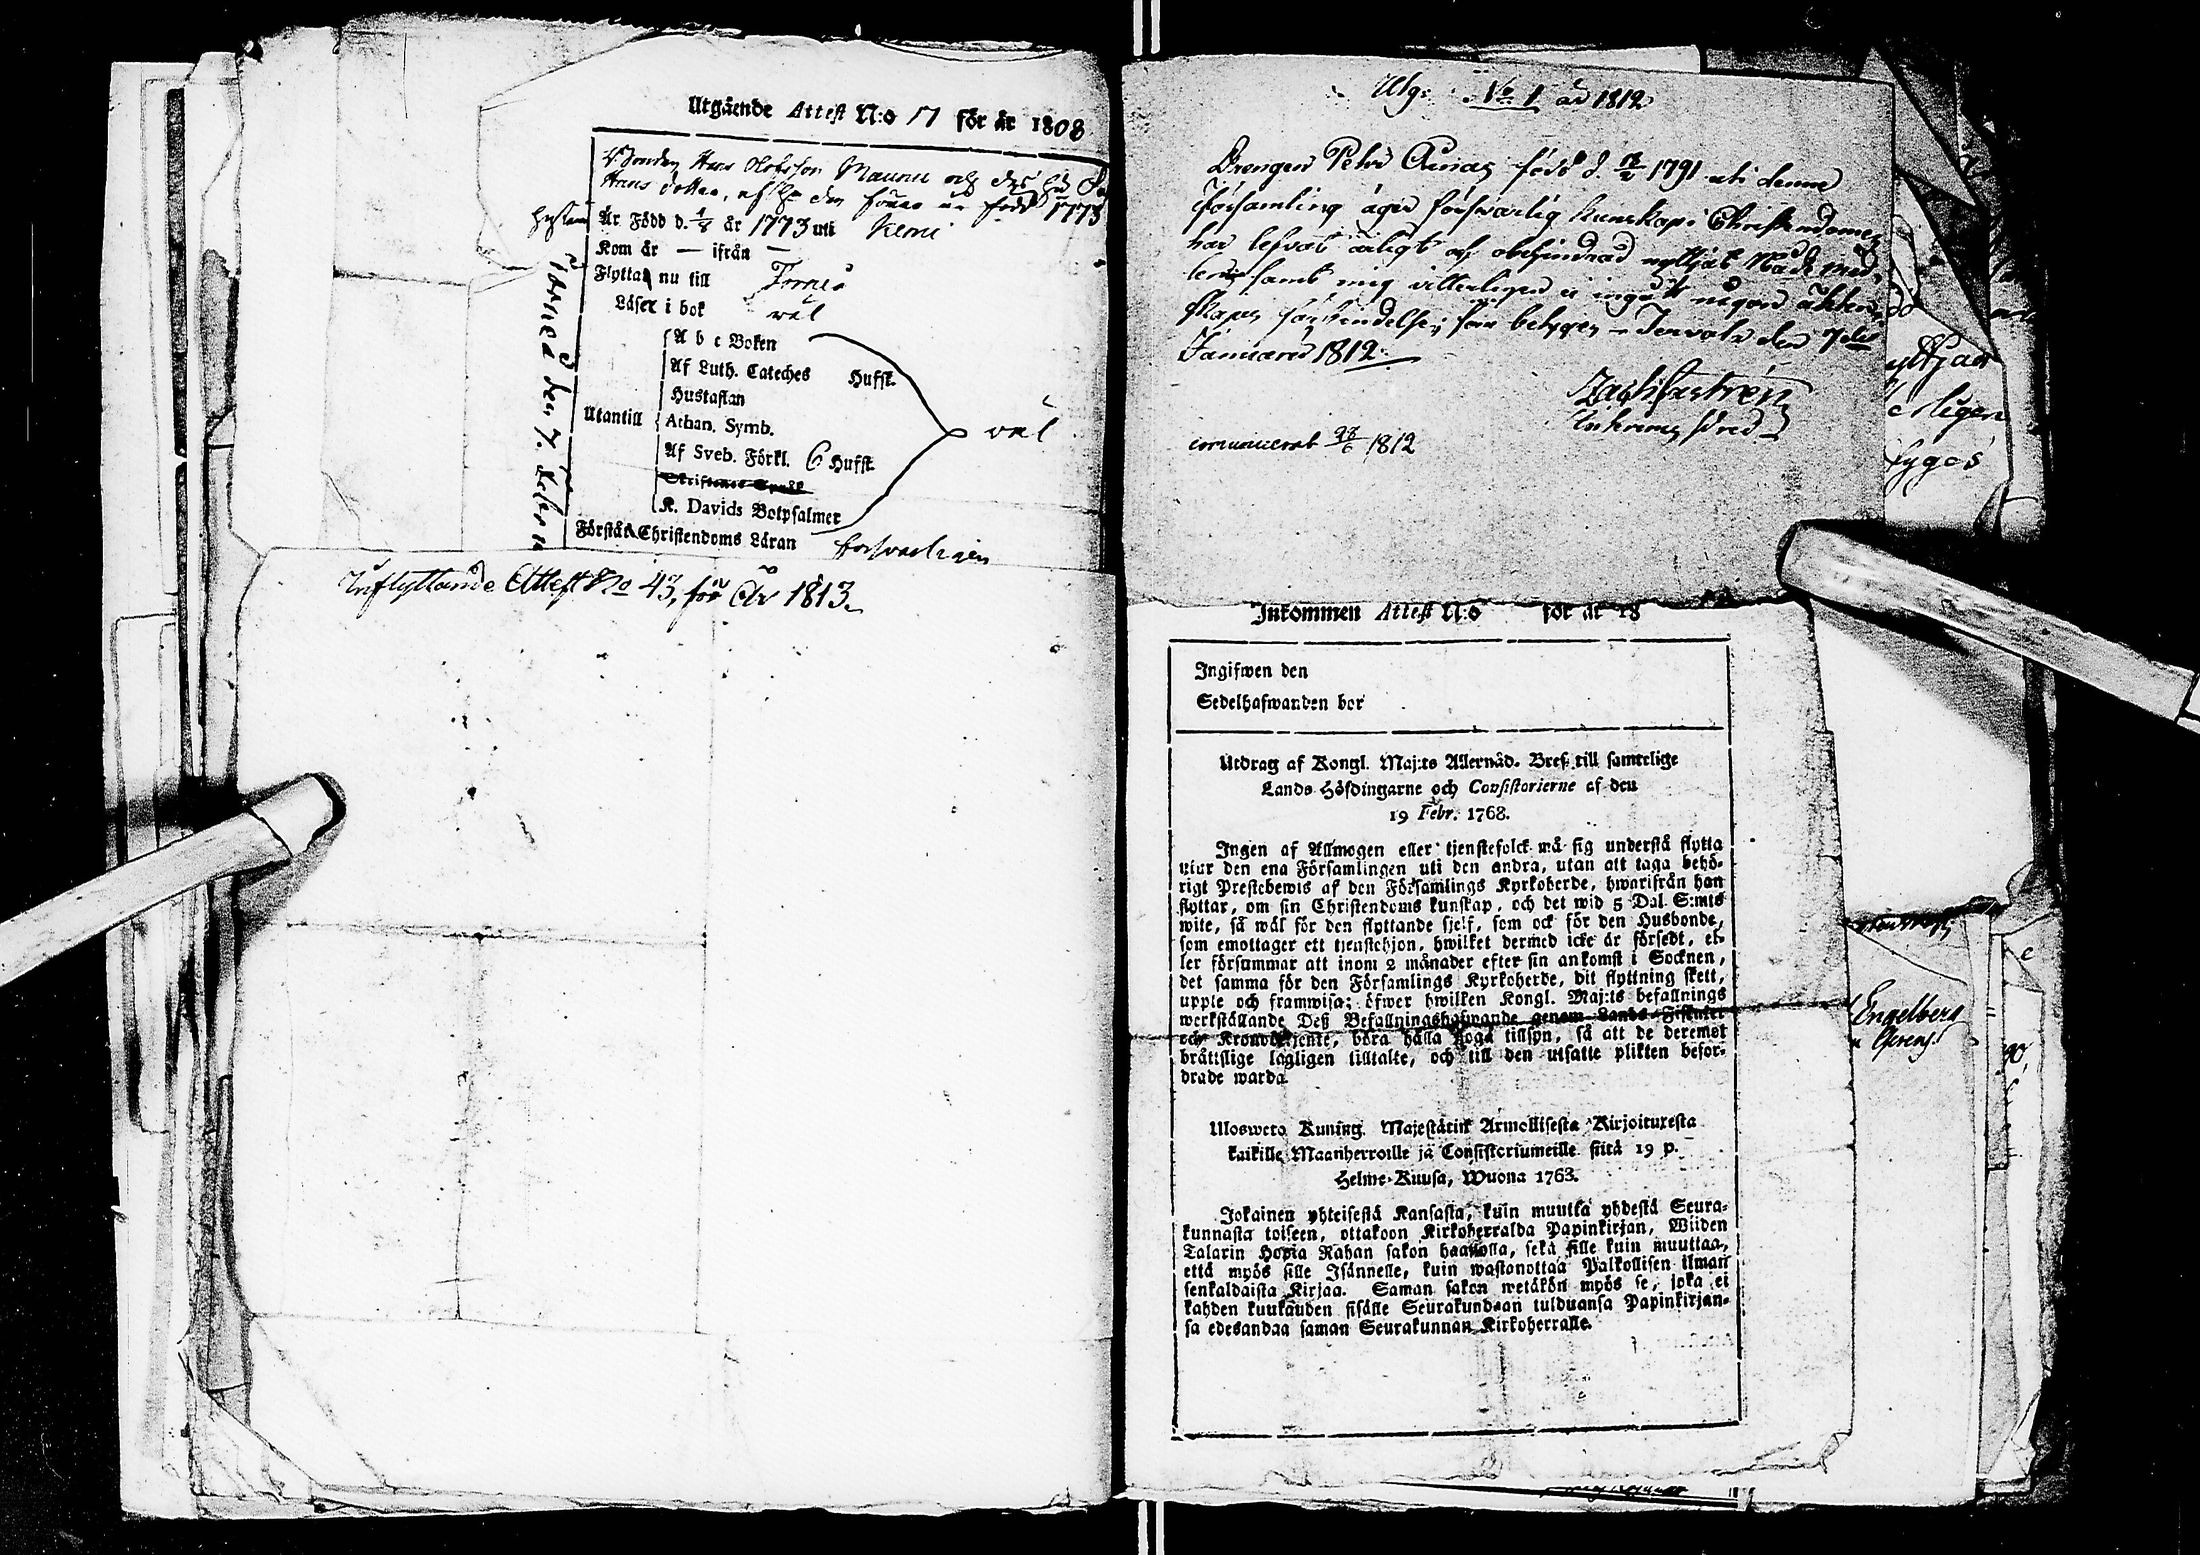 Utgående Attest N:o 17 för år 1808
Bonden Hans Olofsson Maunu och des
Hans dotter, den förre är född 1773
Är Född d. 4/8 år 1773 uti Kemi
Kom år — ifrån —
Flyttar nu till Torneå
Läser i bok wäl
A b c Boken
Af Luth. Cateches Hufst.
Hustaflan
Utantill Athan. Symb. wäl
Af Sveb. Förkl. 6 Hufst.
K. Davids Botpsalmer
Förstår Christendoms Läran försvarligen
Torneå den 7.
Inflyttande Attest No 43, för År 1813.
Utg: No 1 ad 1812
Drengen Petr född d. 1791 uti denne
församling äger försvarlig kunskap i Christendomen
har lefvat ärligt och obehindrad nyttjat Nåde med-
len samt mig vitterligen ej ingått någon äkten-
skaps förbindelse; som betygas Tervola den 7de
Januarii 1812.
communicerat 28/6 1812
yttjad
erligen
tyges
Inkommen Attest N:o för år 18
Ingifwen den
Sedelhafwanden bor
Utdrag af Kongl. Maj:ts Allernåd. Bref till samtelige
Lands Höfdingarne och Consistorierne af den
19 Febr. 1768.
Ingen af Allmogen eller tjenstefolck må sig understå flytta
utur den ena Församlingen uti den andra, utan att taga behö-
rigt Prestebewis af den Församlings Kyrkoherde, hwarifrån han
flyttar, om sin Christendoms kunskap, och det wid 5 Dal. S:mts
wite, så wäl för den flyttande sjelf, som ock för den Husbonde,
som emottager ett tjenstehjon, hwilket dermed icke är försedt, el-
ler försummar att inom 2 månader efter sin ankomst i Socknen,
det samma för den Församlings Kyrkoherde, dit flyttning skett,
upple och framwisa; öfwer hwilken Kongl. Maj:ts befallnings
werkställande Deß Befallningshafwande genom Lands-Fiskaler
och Kronobetjente, böra hålla noga tillsyn, så att de deremot
bråttslige lagligen tilltalte, och till den utsatte plikten befor-
drade warda.
Ulosweto Kuning. Majestätin Armollisesta Kirjoituxesta
kaikille Maanherroille ja Consistoriumeille siitä 19 p.
Helme-Kuusa, Wuona 1763.
Jokainen yhteisestä Kansasta, kuin muutta yhdestä Seura-
kunnasta toiseen, ottakoon Kirkoherralda Papinkirjan, Wiiden
Talarin Hopia Rahan sakon haastolla, sekä sille kuin muuttaa,
että myös sille Isännelle, kuin wastanottaa Palkollisen ilman
senkaldaista Kirjaa. Saman sakon wetäkön myös se, joka ei
kahden kuukauden sisälle Seurakundaan tulduansa Papinkirjan-
sa edesandaa saman Seurakunnan Kirkoherralle.
Engelberg